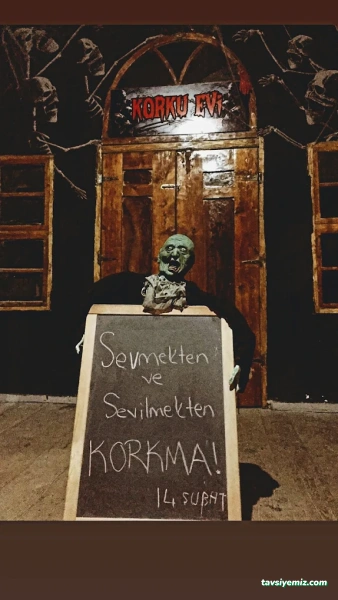 KORKU EVi
Sevmekten
ve
Sevilmekten
KORKMA!
14 ŞUBAT
tavsiyemiz.com